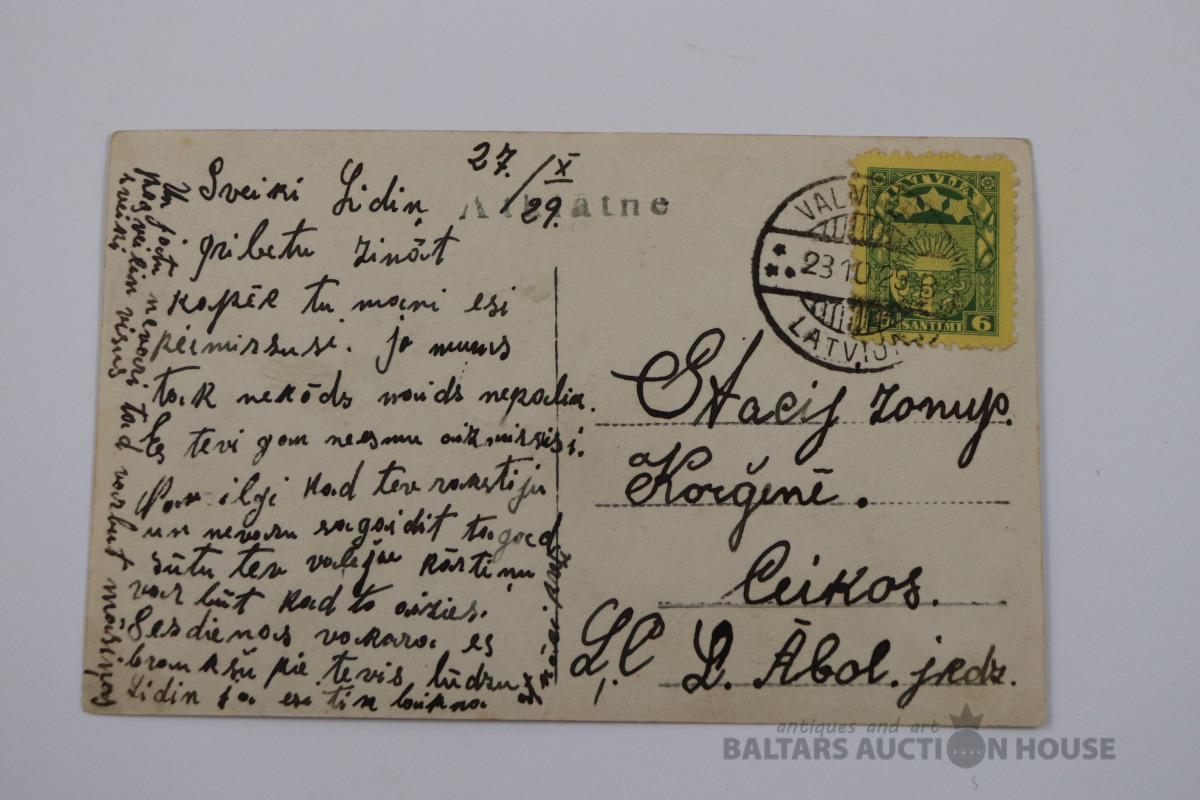 27. X
29.
Atklātne
Sveiki Lidiņ
gribetu zināt
kapēc tu mani esi
piemirsusi. jo mums
tak nekāds naids nepalika.
Es tevi gan neesmu aizmirsisi.
Par ilgi kad tev rakstiju
un nevaru sagaidit tagad
sūtu tev vaļēju kārtiņu
var būt kad to aizies.
Sesdienas vakara es
braukšu pie tevis lūdzu
Lidiņ ja esi tik laikna
un jātu nevari tad varbut māsiņas
pasveicin visus
sveiki
VALM
23 10 29
LATVIJA
LATVIJA
SANTIMI 6
Stacij Zonup.
Korģenē.
Ceikos.
L.C L. Ābol. jkdz.
antiques and art
BALTARS AUCTION HOUSE